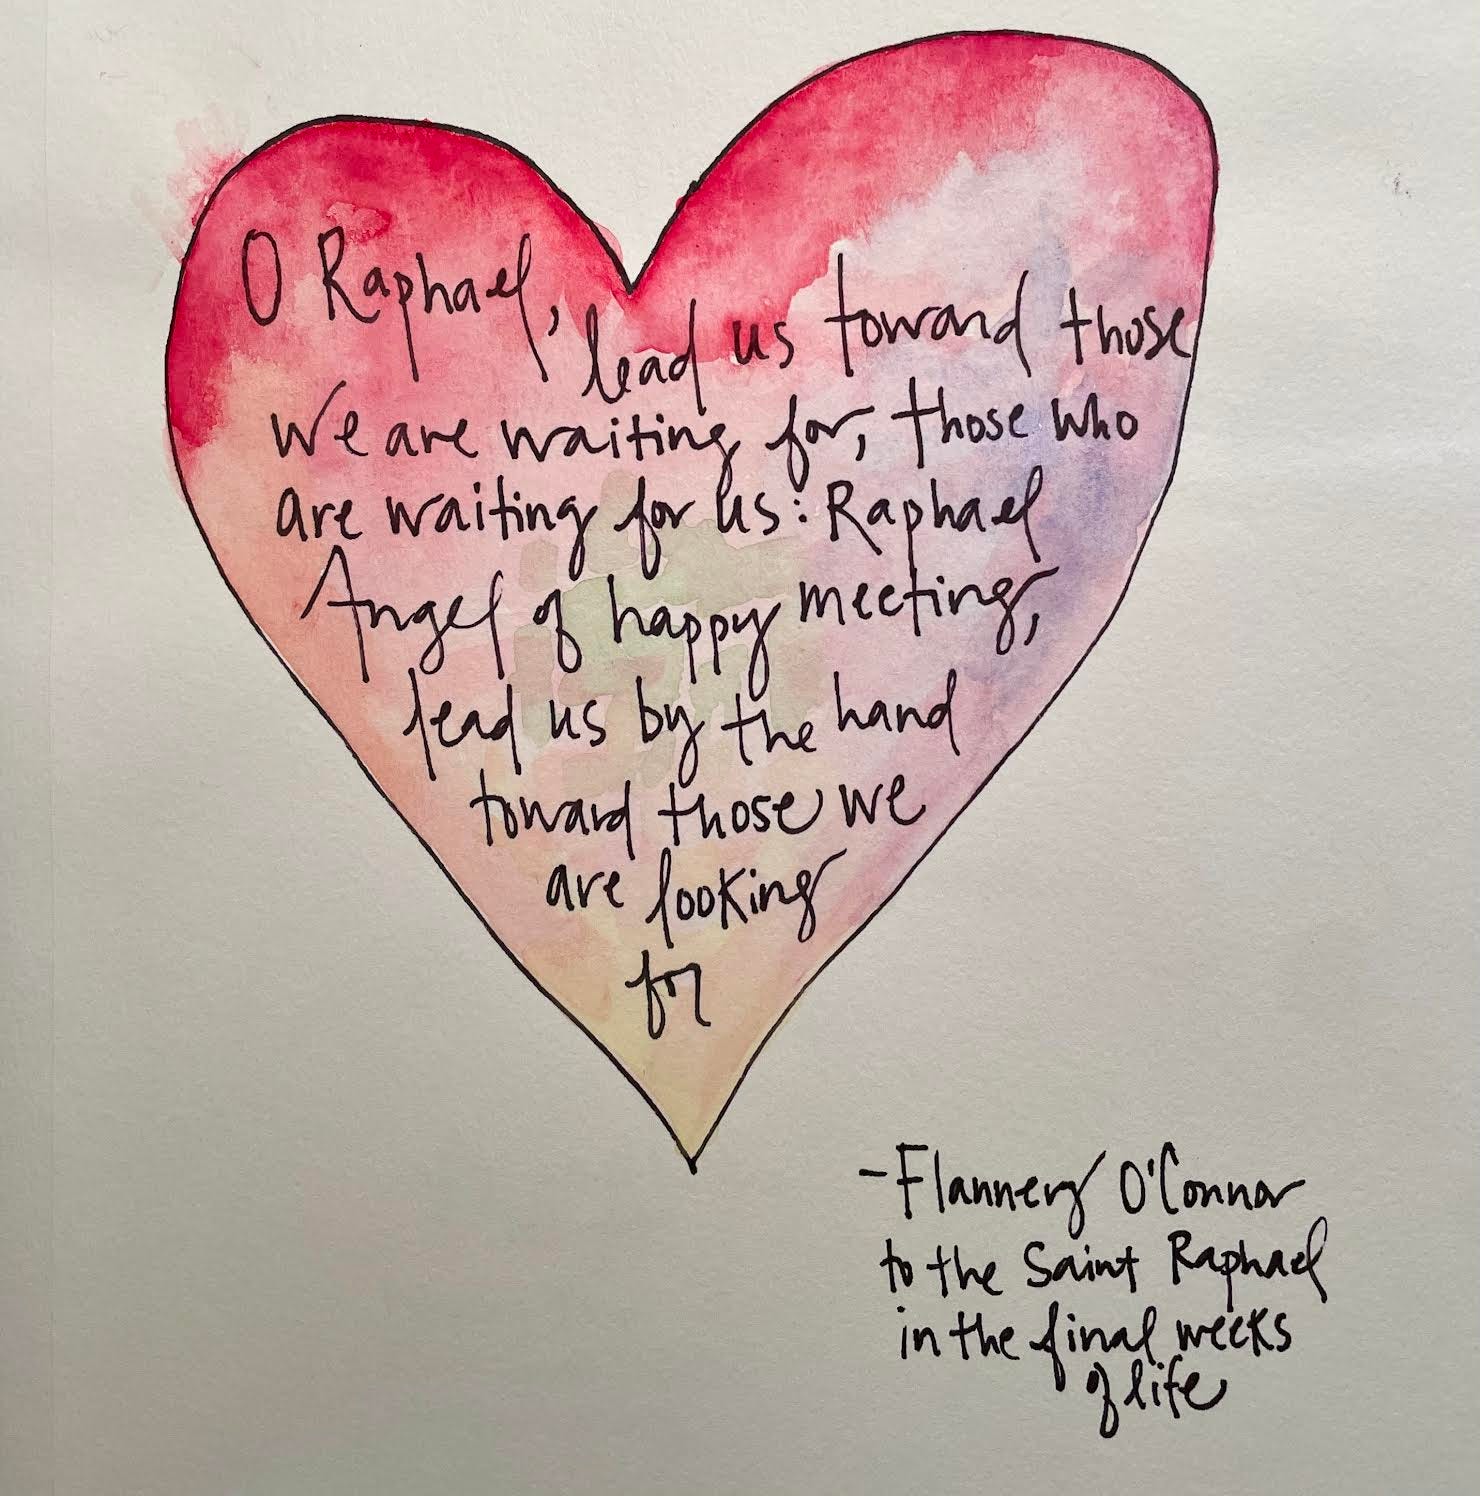 O Raphael, lead us toward those
we are waiting for, those who
are waiting for us: Raphael
Angel of happy meeting,
lead us by the hand
toward those we
are looking
for
-Flannery O'Connor
to the Saint Raphael
in the final weeks
of life